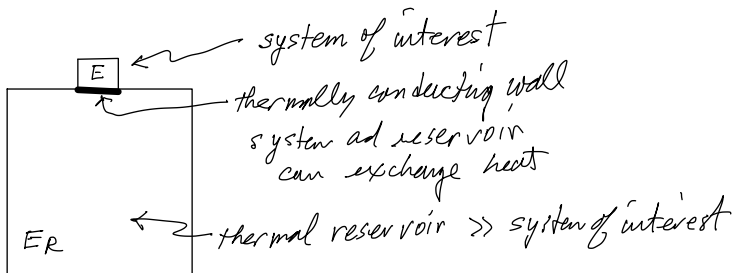 system of interest
E
thermally conducting wall
system ad reservoir
can exchange heat
thermal reservoir >> system of interest
E_R